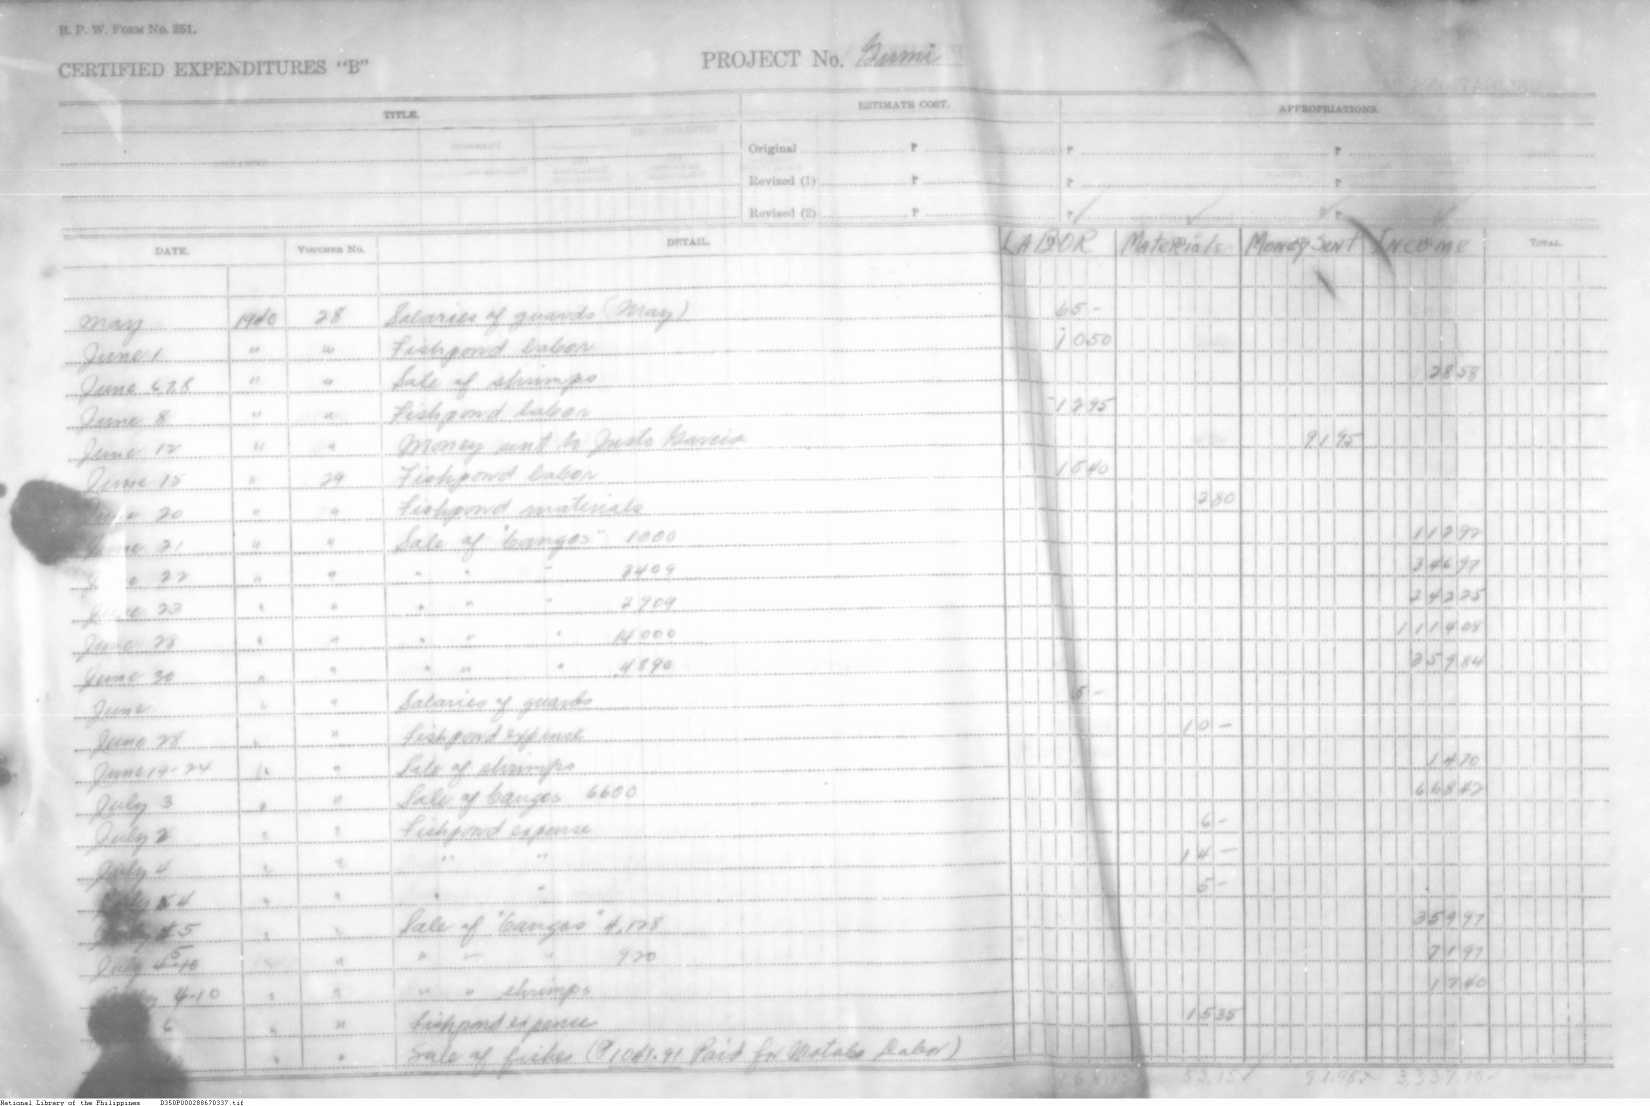 B. P. W. Form No. 251.
CERTIFIED EXPENDITURES "B"
PROJECT No. Gumi
TITLE.
ESTIMATE COST.
APPROPRIATIONS.
Original ₱ ₱ ₱
Revised (1) ₱ ₱ ₱
Revised (2) ₱ ₱ ₱
DATE. VOUCHER No. DETAIL. LABOR Materials Money Sent Income TOTAL.
May 1940 28 Salaries of guards (May) 65 -
June 1 " " Fishpond labor 10 50
June 6,7,8 " " Sale of shrimps 28 58
June 8 " " Fishpond labor 12 95
June 12 " " Money sent to Justo Garcia 91 95
June 15 " 29 Fishpond labor 15 40
June 20 " " Fishpond materials 2 80
June 21 " " Sale of "bangos" 1000 112 92
June 22 " " " " " 3409 346 97
June 23 " " " " " 2909 242 25
June 28 " " " " " 14000 1114 08
June 30 " " " " " 4890 259 84
June " " Salaries of guards 5 -
June 28 " " Fishpond expense 10 -
June 19-24 " " Sale of shrimps 14 70
July 3 " " Sale of bangos 6600 668 42
July 2 " " Fishpond expense 6 -
July 4 " " " " 14 -
July 4 " " " " 5 -
5 " Sale of "bangos" 4,128 359 97
July 5-10 " " " " 920 71 97
4-10 " " " " shrimps 17 40
6 " " Fishpond expense 15 35
" " Sale of fishes (₱1061.91 Paid for Matabo Labor)
53.15 91.95 3,337.10
National Library of the Philippines D350P000288670337.tif